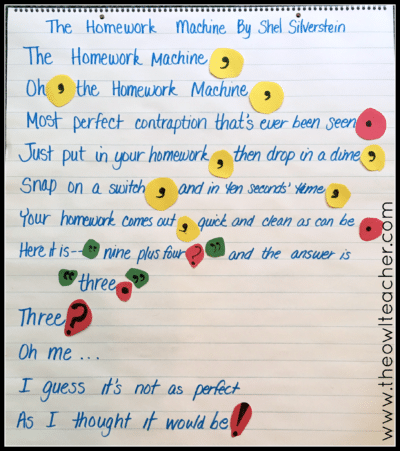 The Homework Machine By Shel Silverstein
The Homework Machine,
Oh, the Homework Machine,
Most perfect contraption that's ever been seen.
Just put in your homework, then drop in a dime,
Snap on a switch, and in ten seconds' time,
Your homework comes out, quick and clean as can be.
Here it is--“nine plus four?” and the answer is
“three.”
Three?
Oh me ...
I guess it's not as perfect
As I thought it would be!
www.theowlteacher.com